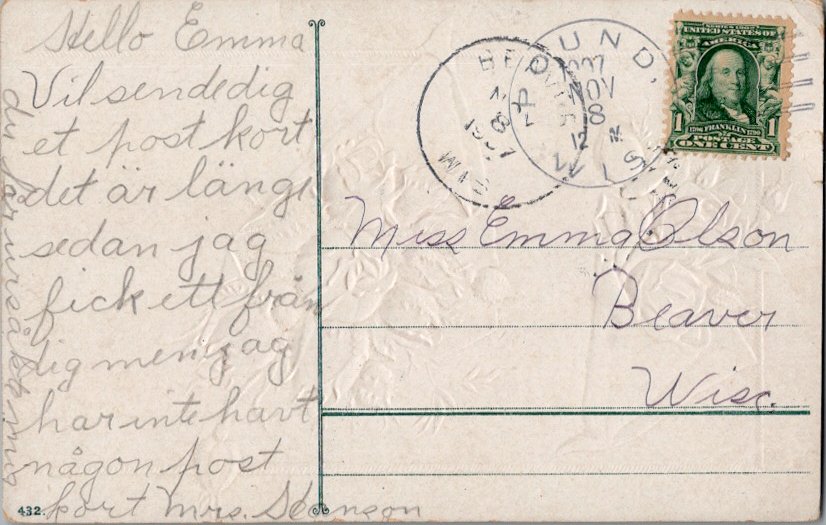 Hello Emma
Vil sende dig
et post kort
det är länge
sedan jag
fick ett från
dig men jag
har inte havt
någon post
kort Mrs. Swanson
du får ursäkta mig
432.
Miss Emma Olson
Beaver
Wisc.
BEAVER
NOV
8
1907
WIS.
POUND,
1907
NOV
8
12 M
WIS.
SERIES 1902
UNITED STATES OF
AMERICA
1
1706 FRANKLIN 1790
POSTAGE
ONE CENT
1